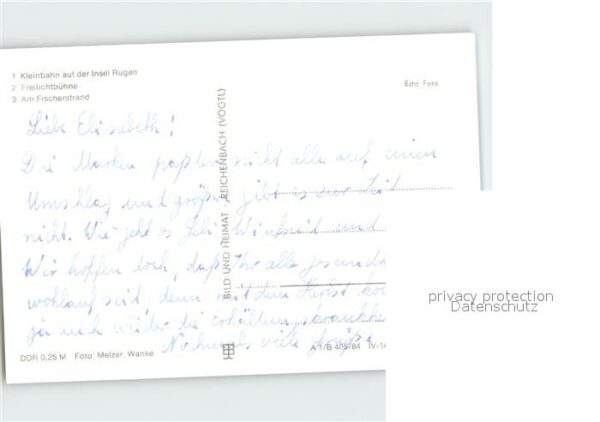 1 Kleinbahn auf der Insel Rügen
2 Freilichtbühne
3 Am Fischerstrand
Echt Foto
BILD UND HEIMAT · REICHENBACH (VOGTL)
Liebe Elisabeth!
Die Marken paßten nicht alle auf einen
Umschlag und größere gibt es zur Zeit
nicht. Wie geht es Winfried und
Wir hoffen doch, daß Ihr alle gesund
wohlauf seid denn mit dem Herbst
ja auch wieder die
Nochmals viele Grüße
DDR 0,25 M Foto: Melzer, Wanke
A 1/B 405/84 IV-14
privacy protection
Datenschutz